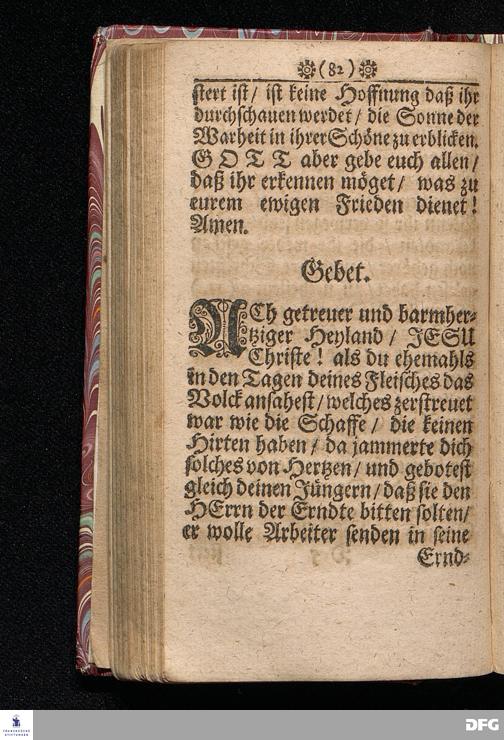 (82)
stert ist/ ist keine Hoffnung daß ihr
durchschauen werdet/ die Sonne der
Warheit in ihrer Schöne zu erblicken.
GOTT aber gebe euch allen/
daß ihr erkennen möget/ was zu
eurem ewigen Frieden dienet!
Amen.
Gebet.
ACh getreuer und barmher-
tziger Heyland/ JESU
Christe! als du ehemahls
in den Tagen deines Fleisches das
Volck ansahest/ welches zerstreuet
war wie die Schaffe/ die keinen
Hirten haben/ da jammerte dich
solches von Hertzen/ und gebotest
gleich deinen Jüngern/ daß sie den
HErrn der Erndte bitten solten/
er wolle Arbeiter senden in seine
Ernd-
FRANCKESCHE
STIFTUNGEN
DFG